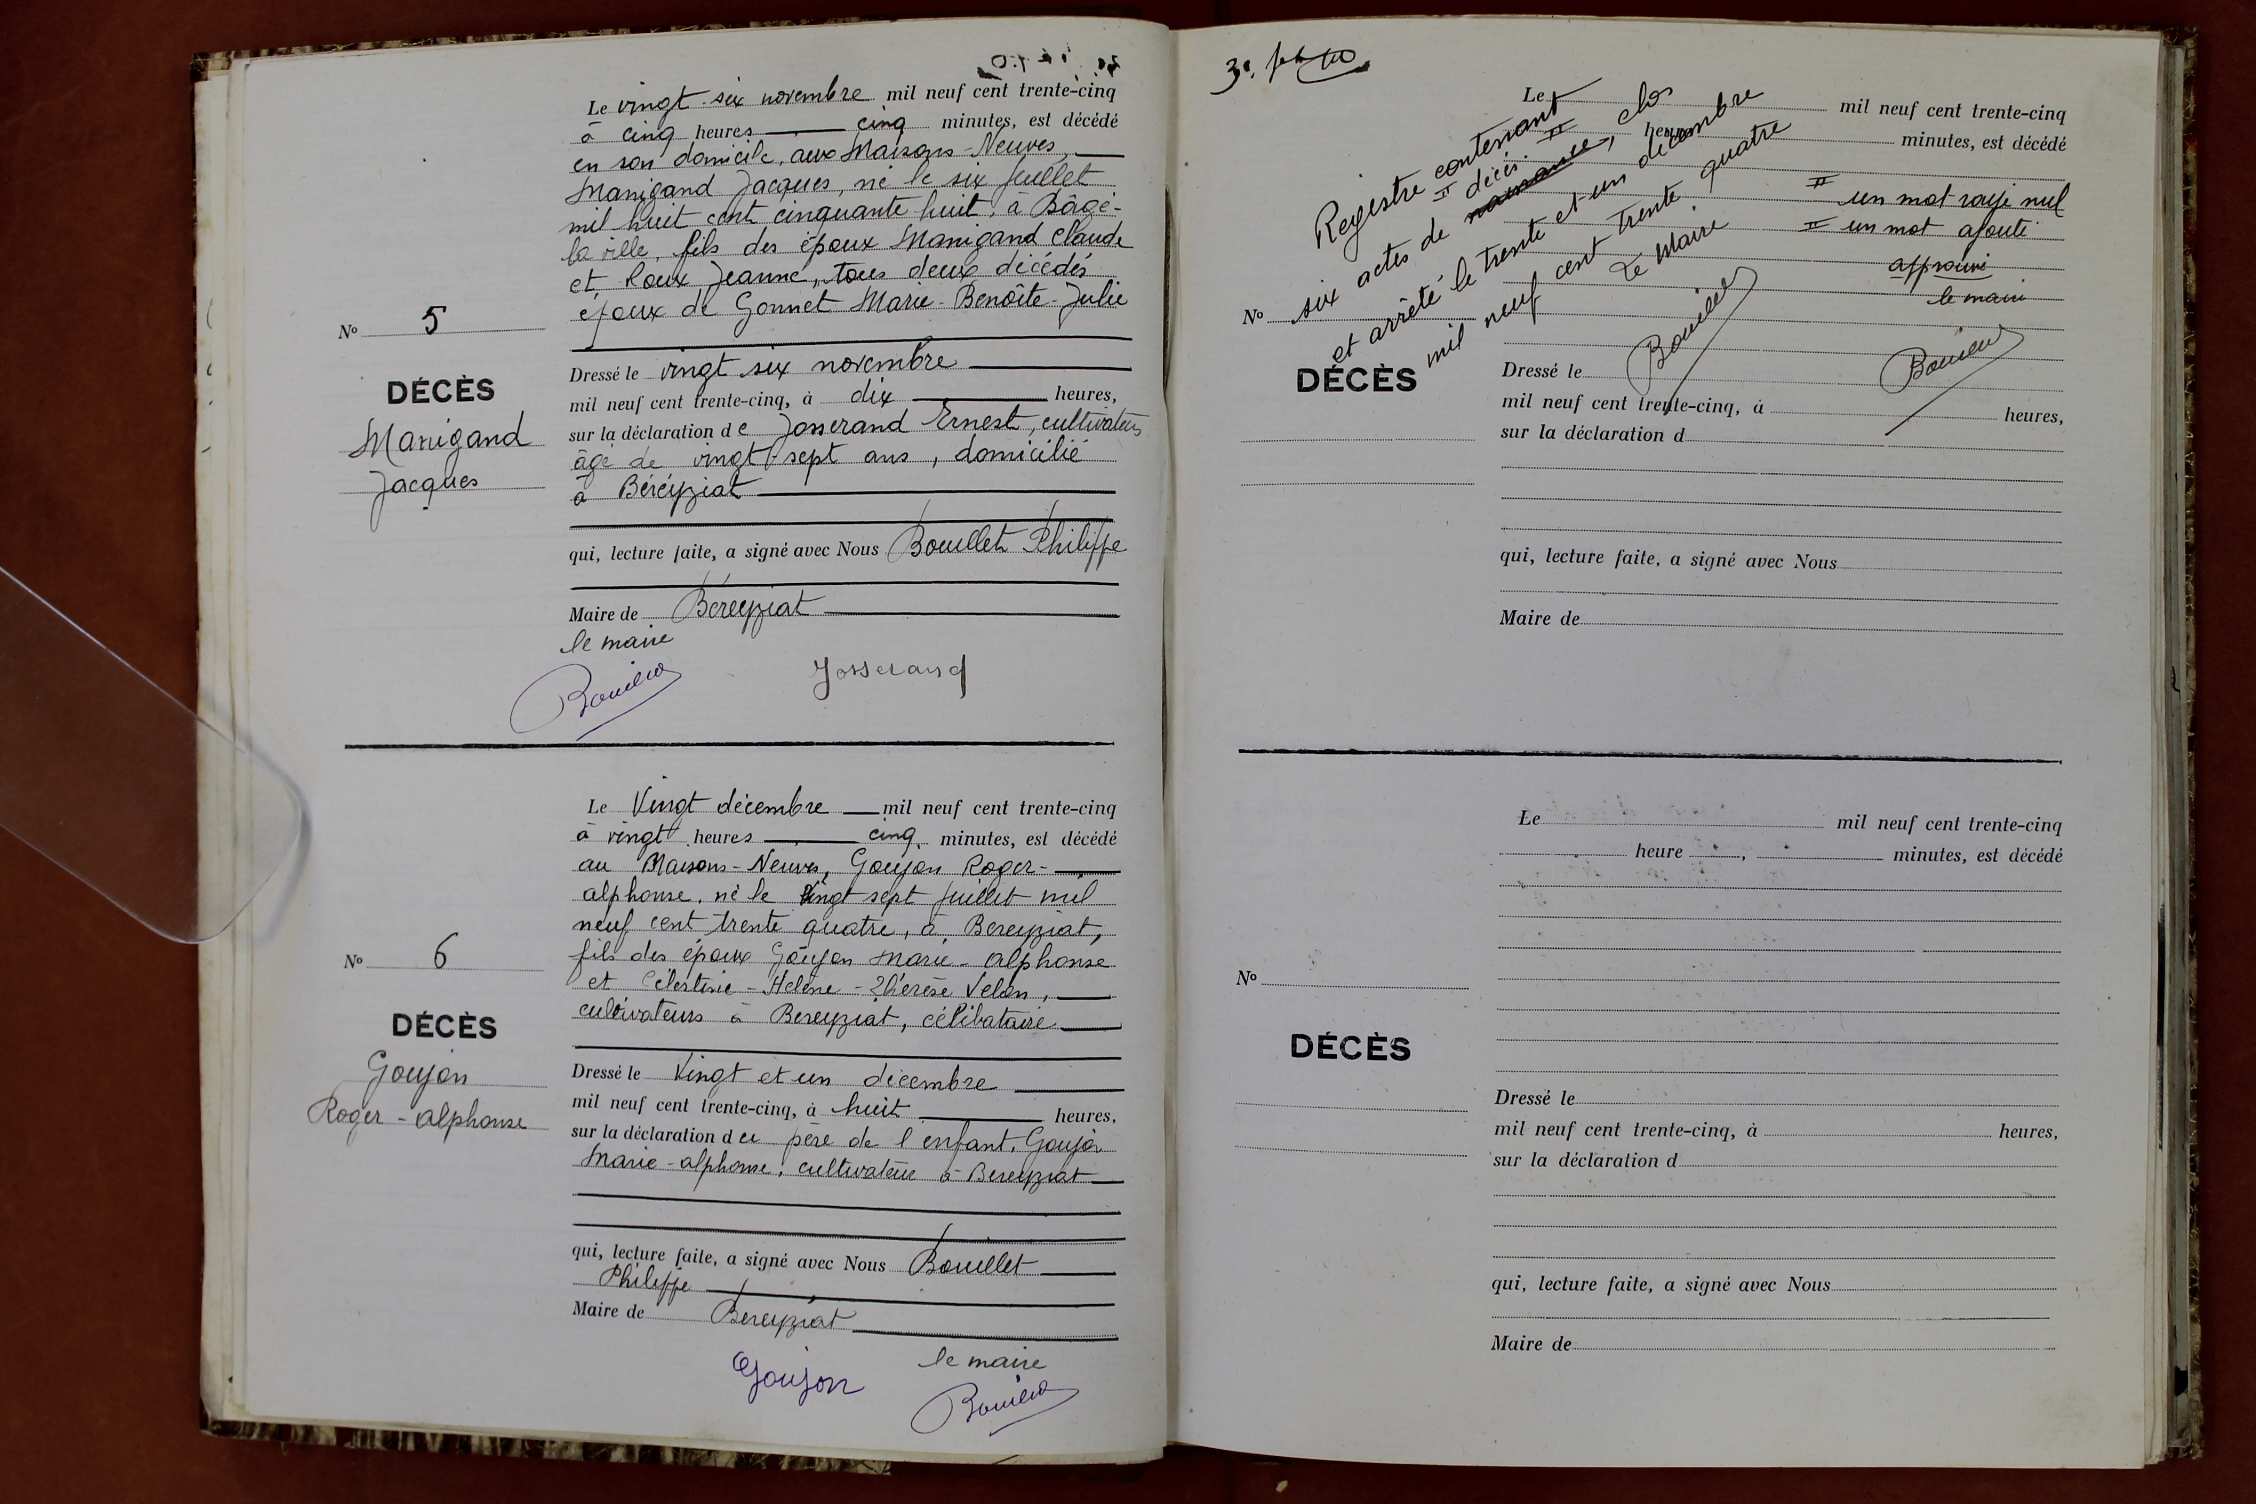 Le vingt-six novembre mil neuf cent trente-cinq
à cinq heures cinq minutes, est décédé
en son domicile, aux Maisons-Neuves,
Manigand Jacques, né le six juillet
mil huit cent cinquante huit, à Bâgé-
la ville, fils des époux Manigand Claude
et Roux Jeanne, tous deux décédés
époux de Gonnet Marie-Benoîte-Julie
No 5
DÉCÈS
Manigand
Jacques
Dressé le vingt six novembre
mil neuf cent trente-cinq, à dix heures,
sur la déclaration de Josserand Ernest, cultivateur
âgé de vingt-sept ans, domicilié
à Béréyziat
qui, lecture faite, a signé avec Nous Bouillet Philippe
Maire de Béreyziat
le maire
Bouillet
Josserand
Le Vingt décembre mil neuf cent trente-cinq
à vingt heures cinq minutes, est décédé
au Maisons-Neuves, Goujon Roger-
alphonse, né le vingt sept juillet mil
neuf cent trente quatre, à Bereyziat,
fils des époux Goujon Marie-alphonse
et Célestine-Hélène-Thérèse Velon,
cultivateurs à Bereyziat, célibataire
No 6
DÉCÈS
Goujon
Roger-alphonse
Dressé le Vingt et un décembre
mil neuf cent trente-cinq, à huit heures,
sur la déclaration du père de l'enfant, Goujon
Marie-alphonse, cultivateur à Bereyziat
qui, lecture faite, a signé avec Nous Bouillet
Philippe
Maire de Bereyziat
Goujon
le maire
Bouillet
Le mil neuf cent trente-cinq
heure minutes, est décédé
Registre contenant
six actes de naissance, II décès II clos
et arrêté le trente et un décembre
mil neuf cent trente quatre
Le Maire
Bouillet
II un mot rayé nul
II un mot ajouté
approuvé
le maire
Bouillet
No
DÉCÈS
Dressé le
mil neuf cent trente-cinq, à heures,
sur la déclaration d
qui, lecture faite, a signé avec Nous
Maire de
Le mil neuf cent trente-cinq
heure , minutes, est décédé
No
DÉCÈS
Dressé le
mil neuf cent trente-cinq, à heures,
sur la déclaration d
qui, lecture faite, a signé avec Nous
Maire de